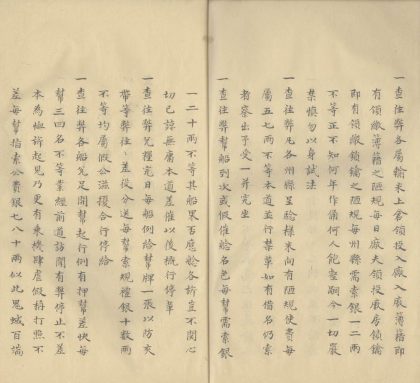 一查往弊各屬輸米上倉領入廠入廠簿籍即
有領繳簿籍之陋規每日廠夫領授廠房領鑰
即有領繳鎖鑰之陋規每州縣需索銀一二兩
不等正不知何年作俑何人飽壑嗣今一切嚴
禁慎勿以身試法
一查往弊凡各州縣呈驗樣米向有陋規使費每
屬五七兩不等本道並行禁革如有借名仍索
者察出予受一并究坐
一查往弊幫船到次或假催艙名色每幫需索銀
一二十兩不等其船果否應艙各訪豈不関心
切已諒無庸本道差催以後概行停革
一查往弊兌糧完日每船例給幫牌一張以防夾
帶等弊往差役分送每幫索規禮銀十數兩
不等均屬假公濟援合行停給
一查往弊各船兌足開幫起行例有押幫差快每
幫三四名不等業經前道訪聞有弊停止不差
本為恤訴起見乃更有乘機肆虐假捐打照不
差每幫指索公費銀七八十兩似此鬼蜮百譎